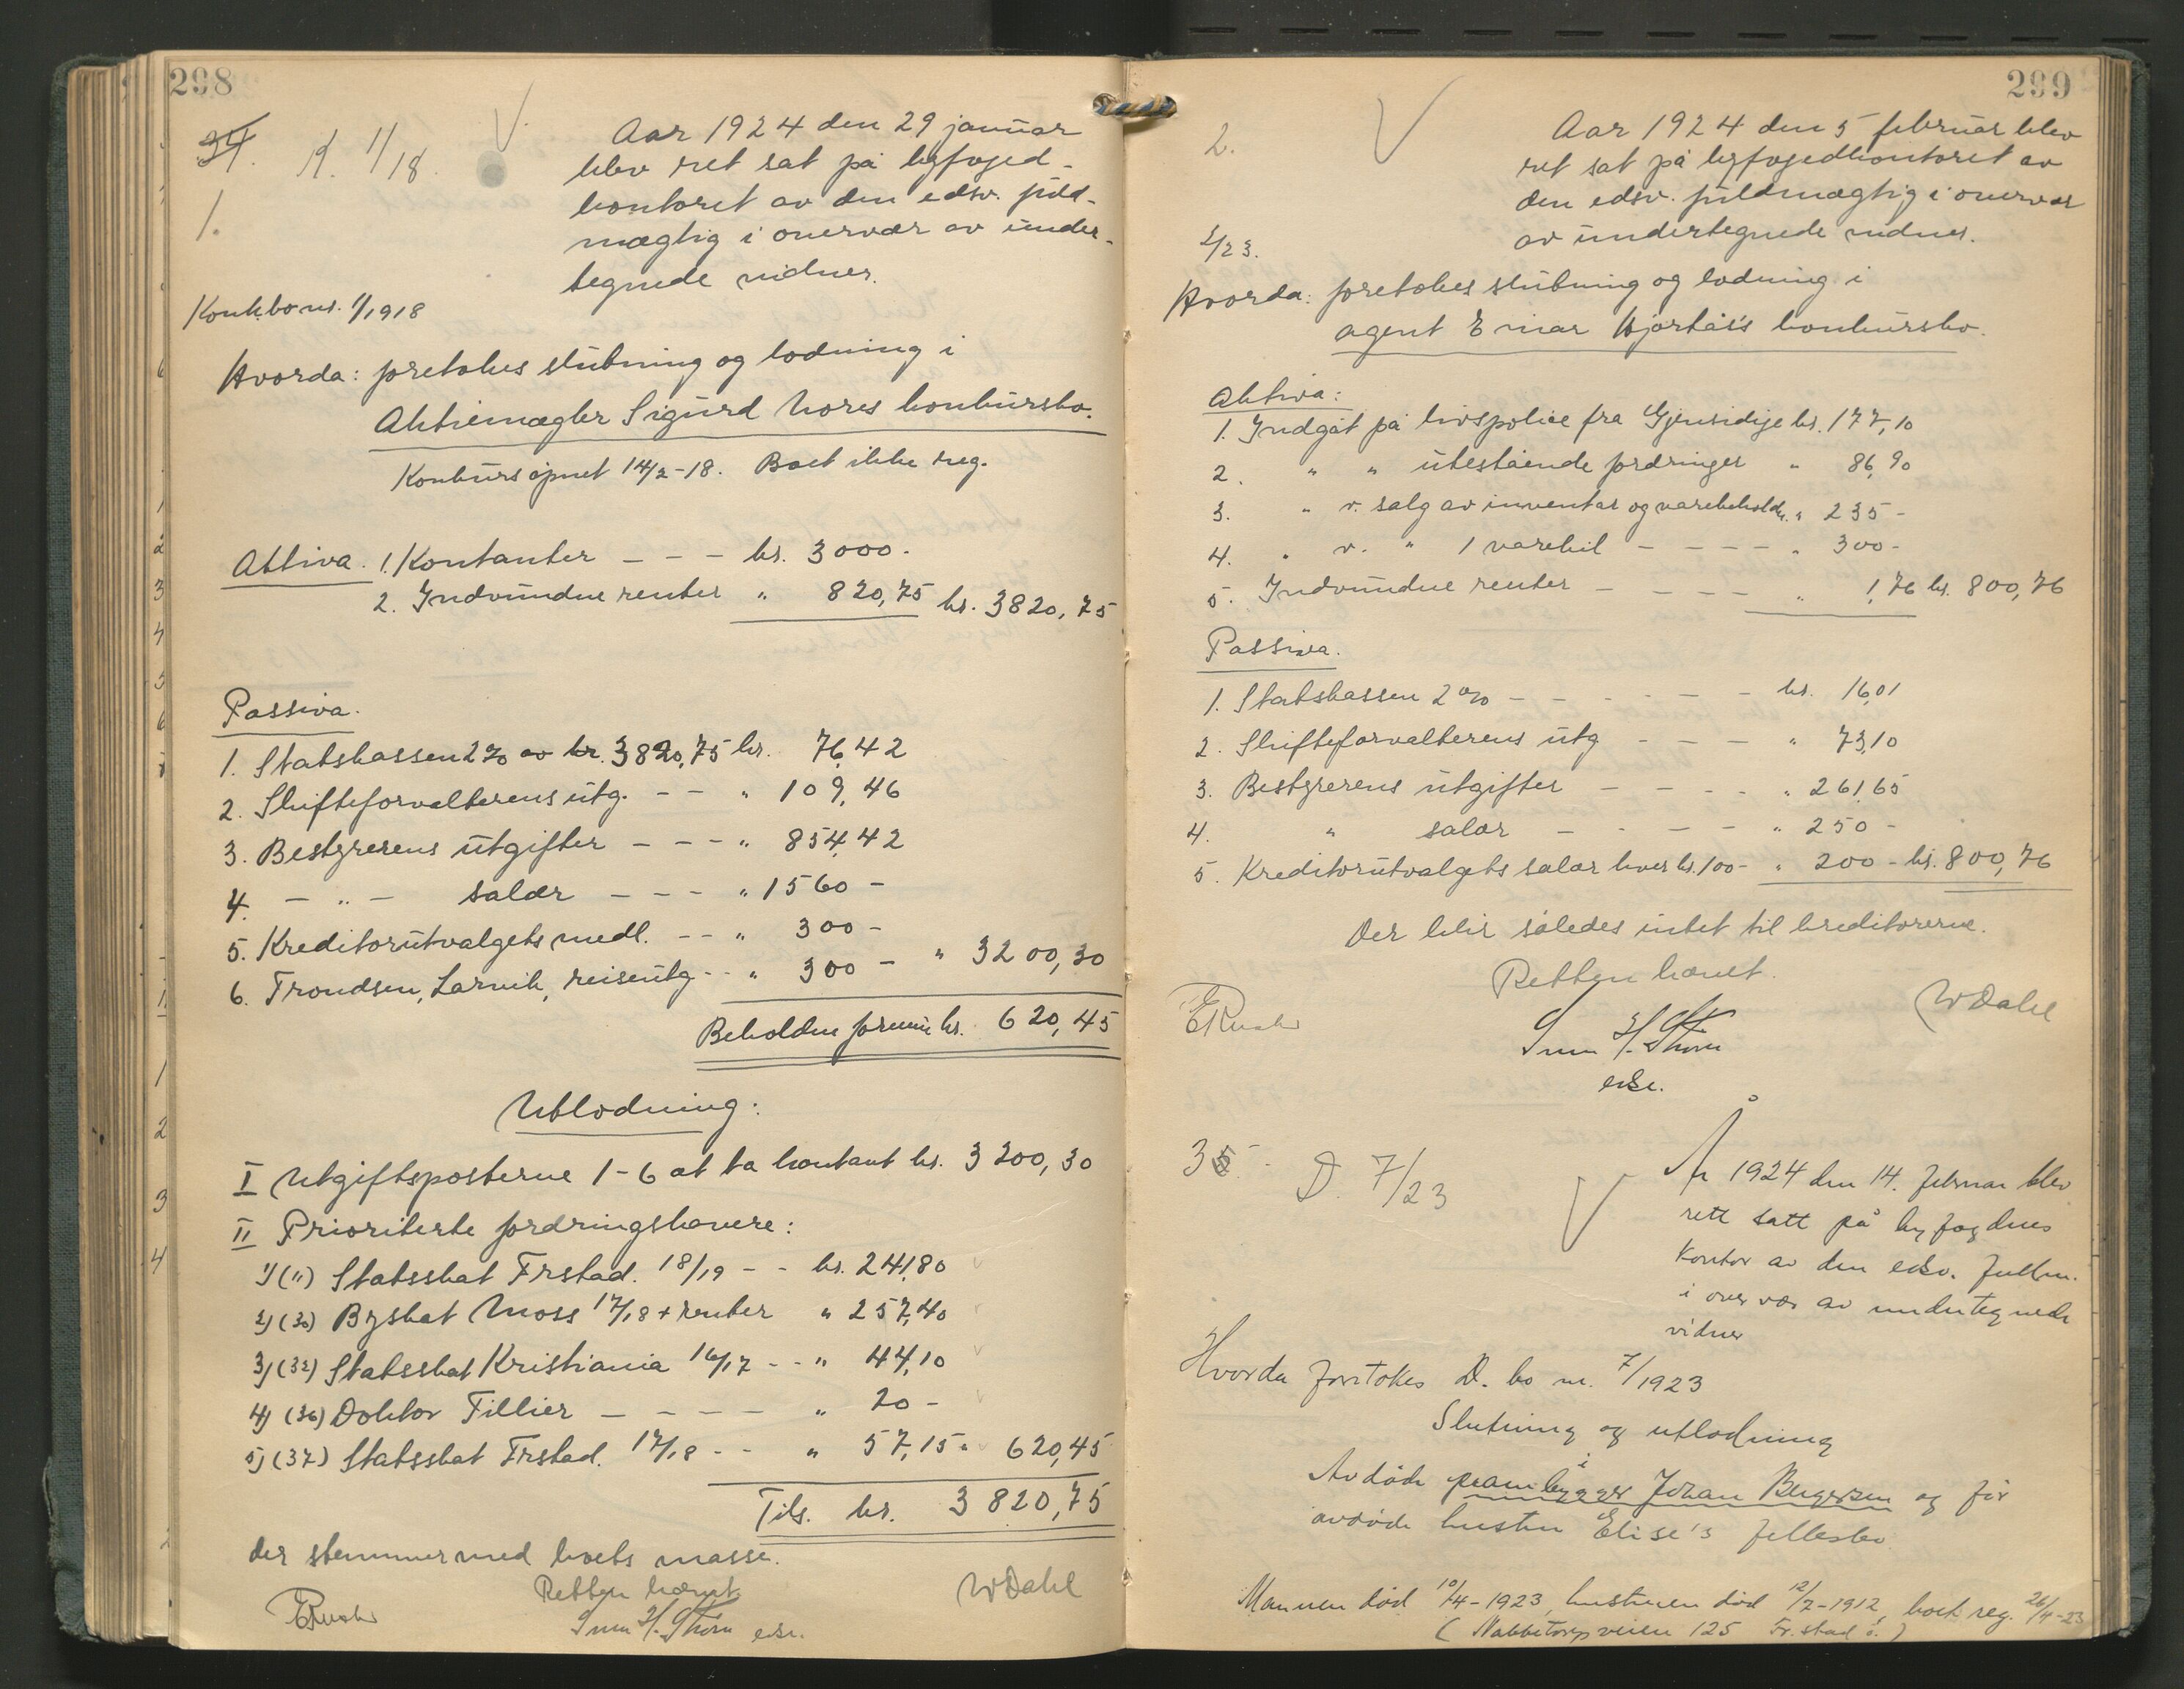 298
34. K. 1/18.
1.
Aar 1924 den 29 januar
blev ret sat på byfoged-
kontoret av den edsv. fuld-
mægtig i overvær av under-
tegnede vidner.
Konk.bo nr. 1/1918
Hvorda: foretokes slutning og lodning i
Aktiemægler Sigurd Mores konkursbo.
Konkurs åpnet 14/2-18. Boet ikke reg.
Aktiva. 1. Kontanter - - - kr. 3000.-
2. Indvundne renter " 820,75 kr. 3820,75
Passiva.
1. Statskassen 2% av kr. 3820,75 kr. 76,42
2. Skifteforvalterens utg. - - " 109,46
3. Bestyrerens utgifter - - - " 854,42
4. - " - salær - - - " 1560 -
5. Kreditorutvalgets medl. - - " 300 -
6. Trondsen, Larvik, reiseutg - - " 300 - " 3200,30
Beholden formue kr. 620,45
Utlodning:
I Utgiftsposterne 1-6 at ta kontant kr. 3200,30
II Prioriterte fordringshavere:
1) (11) Statsskat Frstad. 18/19 - - kr. 241,80
2) (30) Byskat Moss 17/18 + renter " 257,40
3) (32) Statsskat Kristiania 16/17 - - " 44,10
4) (36) Doktor Tillier - - - - " 20 -
5) (37) Statsskat Frstad. 17/18 - - " 57,15 " 620,45
Tils. kr. 3820,75
der stemmer med boets masse.
Retten hævet
WDahl
edsv.
299
2.
Aar 1924 den 5 februar blev
ret sat på byfogedkontoret av
den edsv. fuldmægtig i overvær
av undertegnede vidner.
2/23.
Hvorda: foretokes slutning og lodning i
agent Einar Hjortås's konkursbo.
Aktiva:
1. Indgåt på livspolice fra Gjensidige kr. 177,10
2. " " utestående fordringer " 86,90
3. " v. salg av inventar og varebeholdn. " 235 -
4. " v. " 1 varebil - - - - " 300 -
5. Indvundne renter - - - - " 1,76 kr. 800,76
Passiva.
1. Statskassen 2% - - - - - - kr. 16,01
2. Skifteforvalterens utg - - - " 73,10
3. Bestyrerens utgifter - - - - " 261,65
4. " salær - - - - " 250 -
5. Kreditorutvalgets salær hver kr. 100 - " 200 - kr. 800,76
Der blir således intet til kreditorerne.
Retten hævet.
WDahl
edsv.
35. D. 7/23
År 1924 den 14. februar blev
rett satt på byfogdens
kontor av den edsv. fullm.
i overvær av undertegnede
vidner
Hvorda foretokes D. bo nr. 7/1923
Slutning og utlodning
i
Avdøde prambygger Johan Birgersen og før
avdøde hustru Elise's fellesbo
Mannen død 10/4-1923, hustruen død 12/7-1912, boet reg. 26/4-23
(Nabbetorpveien 125 Fr.stad ø.)